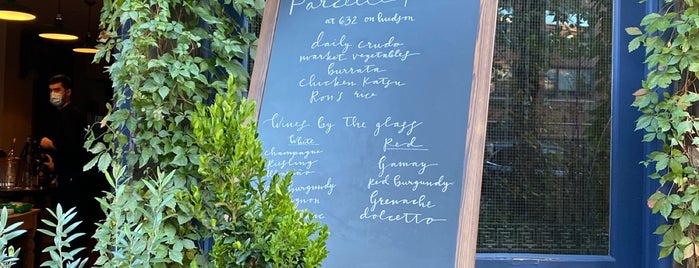 at 632 on hudson
daily crudo
market vegetables
burrata
chicken katsu
Ron's rice
Wines by The glass
White
Red
champagne
Riesling
Gamay
Red Burgundy
Grenache
dolcetto